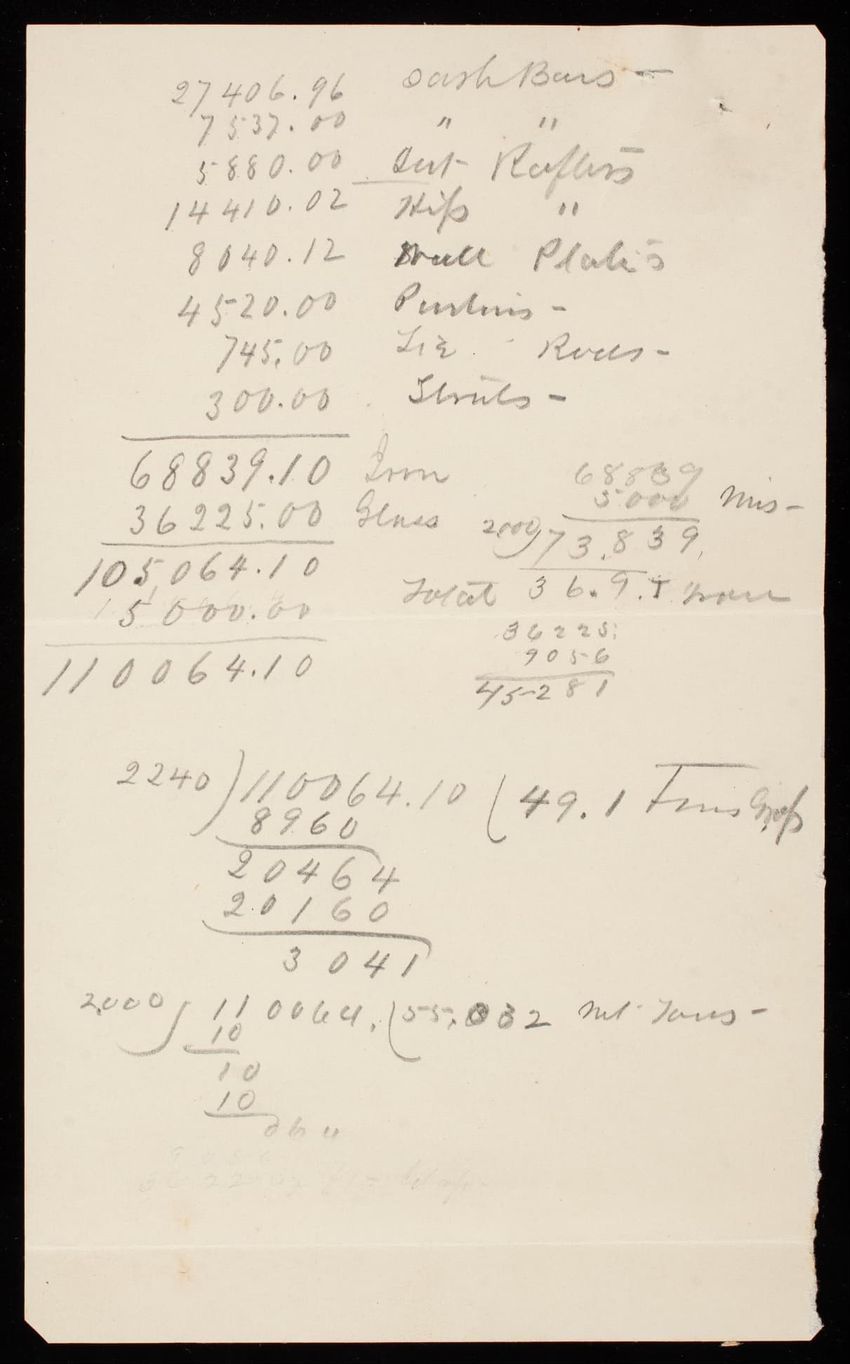 27406.96 Sash Bars —
7537.00 " "
5880.00 Int Rafters
14410.02 Hips "
8040.12 Wall Plates
4520.00 Purlins -
745.00 Tie Rods -
300.00 Struts -
68839.10 Iron
36225.00 Glass
105,064.10
5000.00
110064.10
68839
5000 Mis -
2000) 73,839,
Total 36.9.T Iron
36225
9056
45281
2240) 110064.10 ( 49.1 Tons Gross
8960
20464
20160
3041
2,000) 110064. ( 55,032 Net Tons -
10
10
10
064